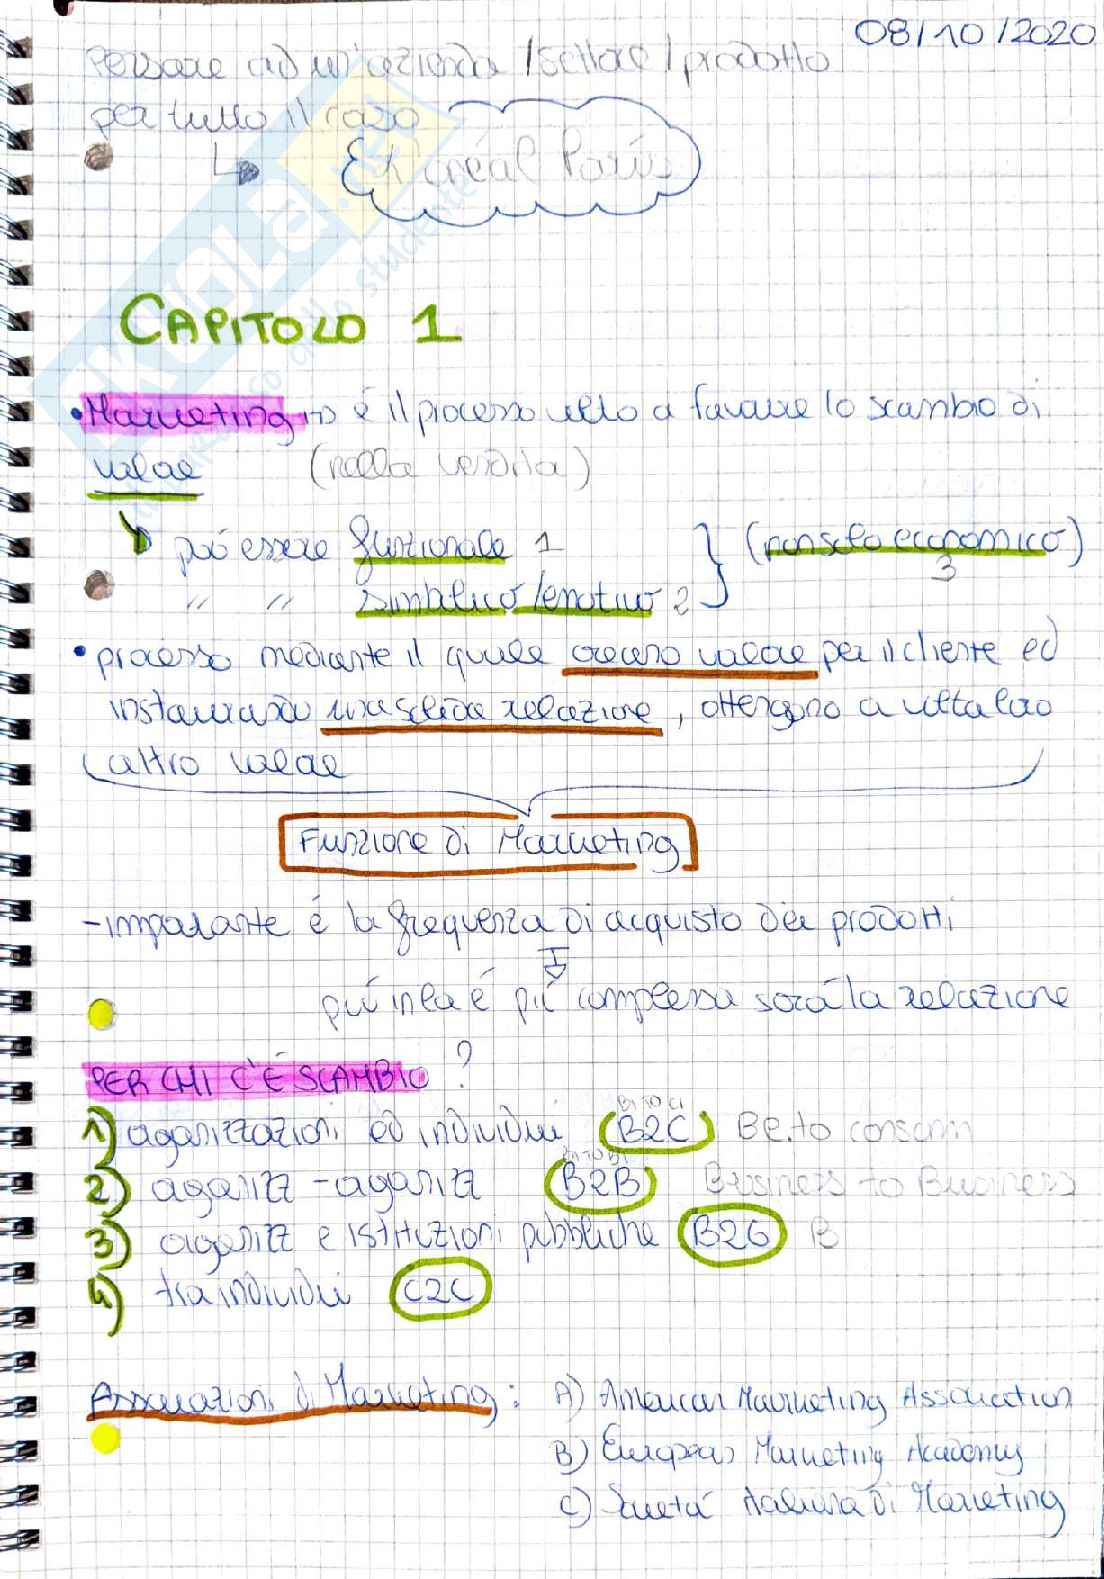 08/10/2020
Pensare ad un'azienda /settore/prodotto
per tutto il corso
L'Oréal Paris
CAPITOLO 1
• Marketing → è il processo volto a favorire lo scambio di
valore (nella vendita)
può essere funzionale 1 } (non solo economico)
3
" " simbolico/emotivo 2
• processo mediante il quale creano valore per il cliente ed
instaurando una solida relazione, ottengono a volta loro
altro valore
Funzione di Marketing
- importante è la frequenza di acquisto dei prodotti
più complessa sarà la relazione
PER CHI C'È SCAMBIO ?
1) organizzazioni ed individui B2C
2) organizz - organizz B2B Business to Business
3) organizz e istituzioni pubbliche B2G B
4) tra individui C2C
Associazioni di Marketing : A) American Marketing Association
B) European Marketing Academy
C) Società Italiana di Marketing
SKUOLA.net